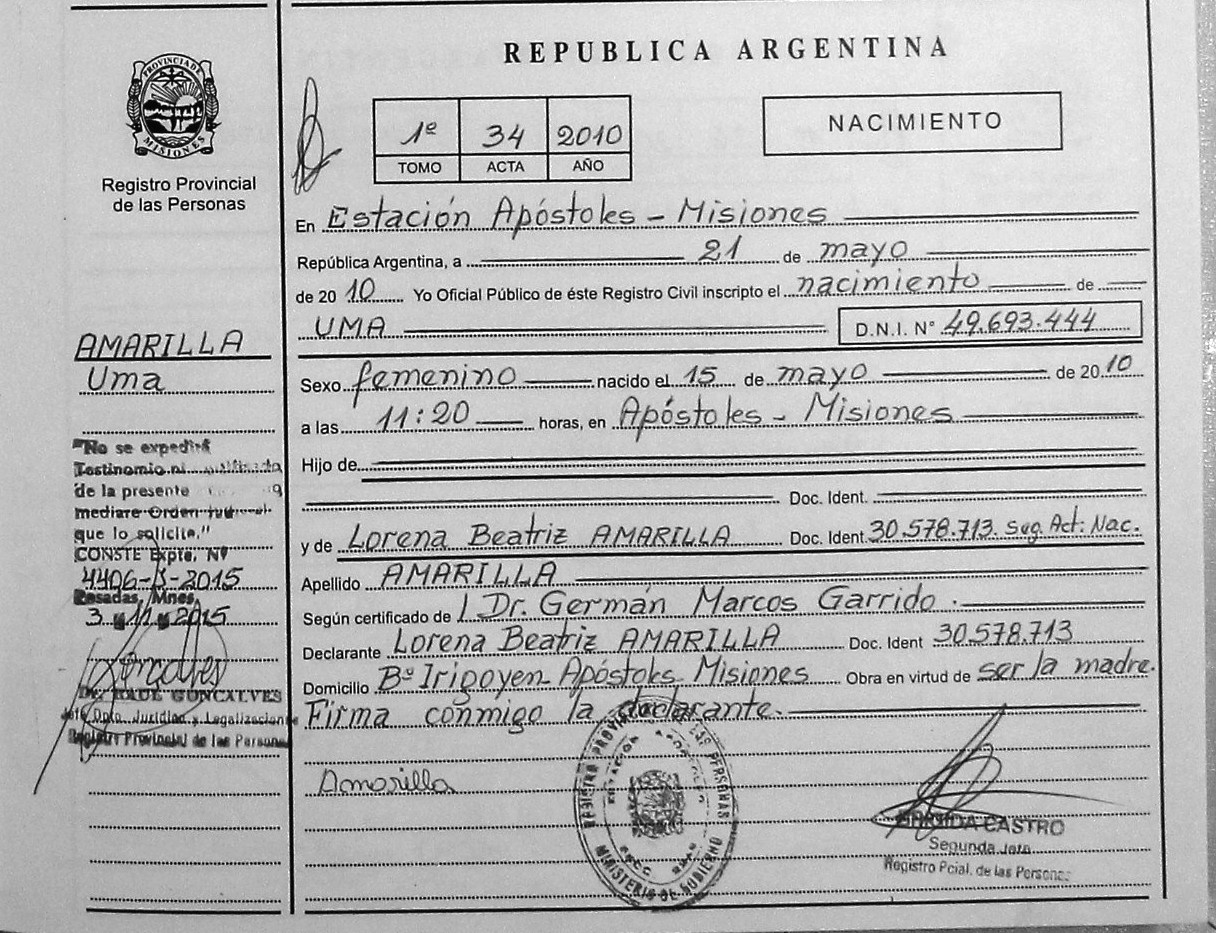 PROVINCIA DE
MISIONES
Registro Provincial
de las Personas
AMARILLA
Uma
"No se expedirá
Testimonio ni
de la presente
mediare Orden
que lo solicite."
CONSTE Expte. Nº
4406-B-2015
Posadas, Mnes,
3 11 2015
Goncalves
Dr. RAUL GONCALVES
Jefe Dpto. Jurídico y Legalizaciones
Registro Provincial de las Personas
REPUBLICA ARGENTINA
1º 34 2010
TOMO ACTA AÑO
NACIMIENTO
En Estación Apóstoles - Misiones
República Argentina, a 21 de mayo
de 2010 Yo Oficial Público de éste Registro Civil inscripto el nacimiento de
UMA D.N.I. Nº 49.693.444
Sexo femenino nacido el 15 de mayo de 2010
a las 11:20 horas, en Apóstoles - Misiones
Hijo de
Doc. Ident.
y de Lorena Beatriz AMARILLA Doc. Ident. 30.578.713. Seg. Act. Nac.
Apellido AMARILLA
Según certificado de Dr. Germán Marcos Garrido.
Declarante Lorena Beatriz AMARILLA Doc. Ident 30.578.713
Domicilio Bº Irigoyen Apóstoles Misiones Obra en virtud de ser la madre.
Firma conmigo la declarante.
Amarilla
REGISTRO PROVINCIAL DE LAS PERSONAS
ESTACIÓN APOSTOLES
MINISTERIO DE GOBIERNO
CASTRO
Segunda Jefa
Registro Pcial. de las Personas